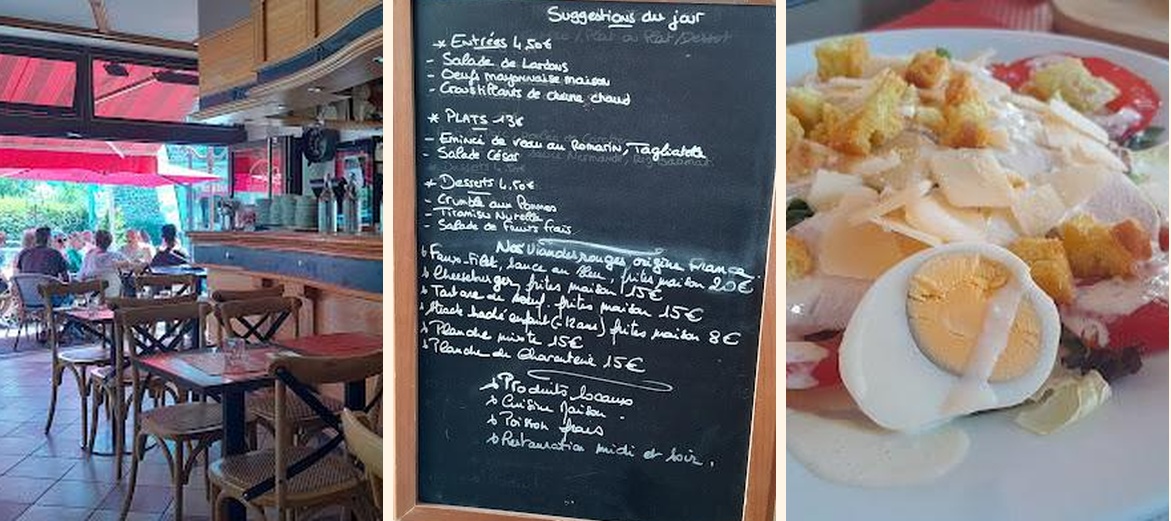 Suggestions du jour
* Entrées 4,50€
- Salade de Lardons
- Oeufs mayonnaise maison
- Croustillants de chèvre chaud
* PLATS 13€
- Emincé de veau au Romarin, Tagliatelle
- Salade César
* Desserts 4,50€
- Crumble aux Pommes
- Tiramisu Nutella
- Salade de Fruits frais
Nos Viandes rouges origine France.
Faux-Filet, sauce au Bleu, frites maison 20€
Cheeseburger, frites maison 15€
Tartare de boeuf, frites maison 15€
Steack haché enfant (-12 ans) frites maison 8€
Planche mixte 15€
Planche de Charcuterie 15€
Produits locaux
Cuisine Maison.
Poisson frais
Restauration midi et soir.